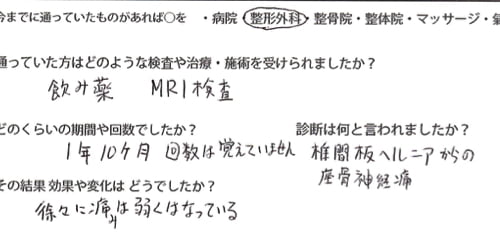 今までに通っていたものがあれば○を ・病院・整形外科・整骨院・整体院・マッサージ・
通っていた方はどのような検査や治療・施術を受けられましたか？
飲み薬 MRI検査
どのくらいの期間や回数でしたか？ 診断は何と言われましたか？
1年10ケ月 回数は覚えていません 椎間板ヘルニアからの
座骨神経痛
その結果 効果や変化は どうでしたか？
徐々に痛みは弱くはなっている